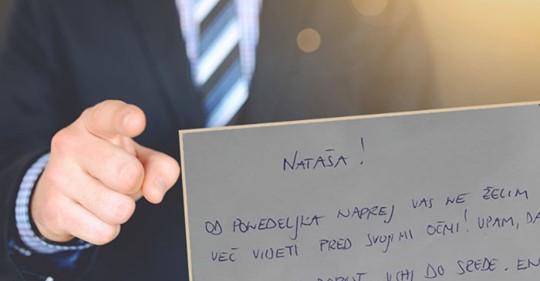 NATAŠA!
OD PONEDELJKA NAPREJ VAS NE ŽELIM
VEČ VIDETI PRED SVOJIMI OČMI! UPAM, DA
DOPUST VSAJ DO SREDE. EN